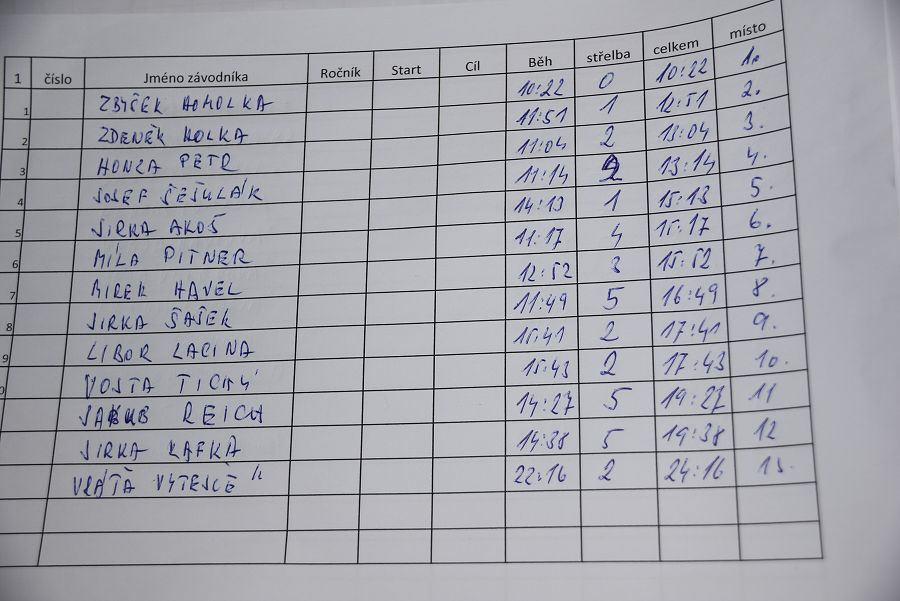 1 číslo Jméno závodníka Ročník Start Cíl Běh střelba celkem místo
1 ZBYČEK HOMOLKA 10:22 0 10:22 1.
2 ZDENĚK HOLKA 11:51 1 12:51 2.
3 HONZA PETR 11:04 2 13:04 3.
4 JOSEF ŠEŠULÁK 11:14 2 13:14 4.
5 JIRKA AKOŠ 14:13 1 15:13 5.
6 MÍLA PITNER 11:17 4 15:17 6.
7 MIREK HAVEL 12:52 3 15:52 7.
8 JIRKA ŠAŠEK 11:49 5 16:49 8.
9 LIBOR LACINA 15:41 2 17:41 9.
0 VOJTA TICHÝ 15:43 2 17:43 10.
JAKUB REICH 14:27 5 19:27 11
JIRKA KAFKA 14:38 5 19:38 12
VRÁŤA 22:16 2 24:16 13.